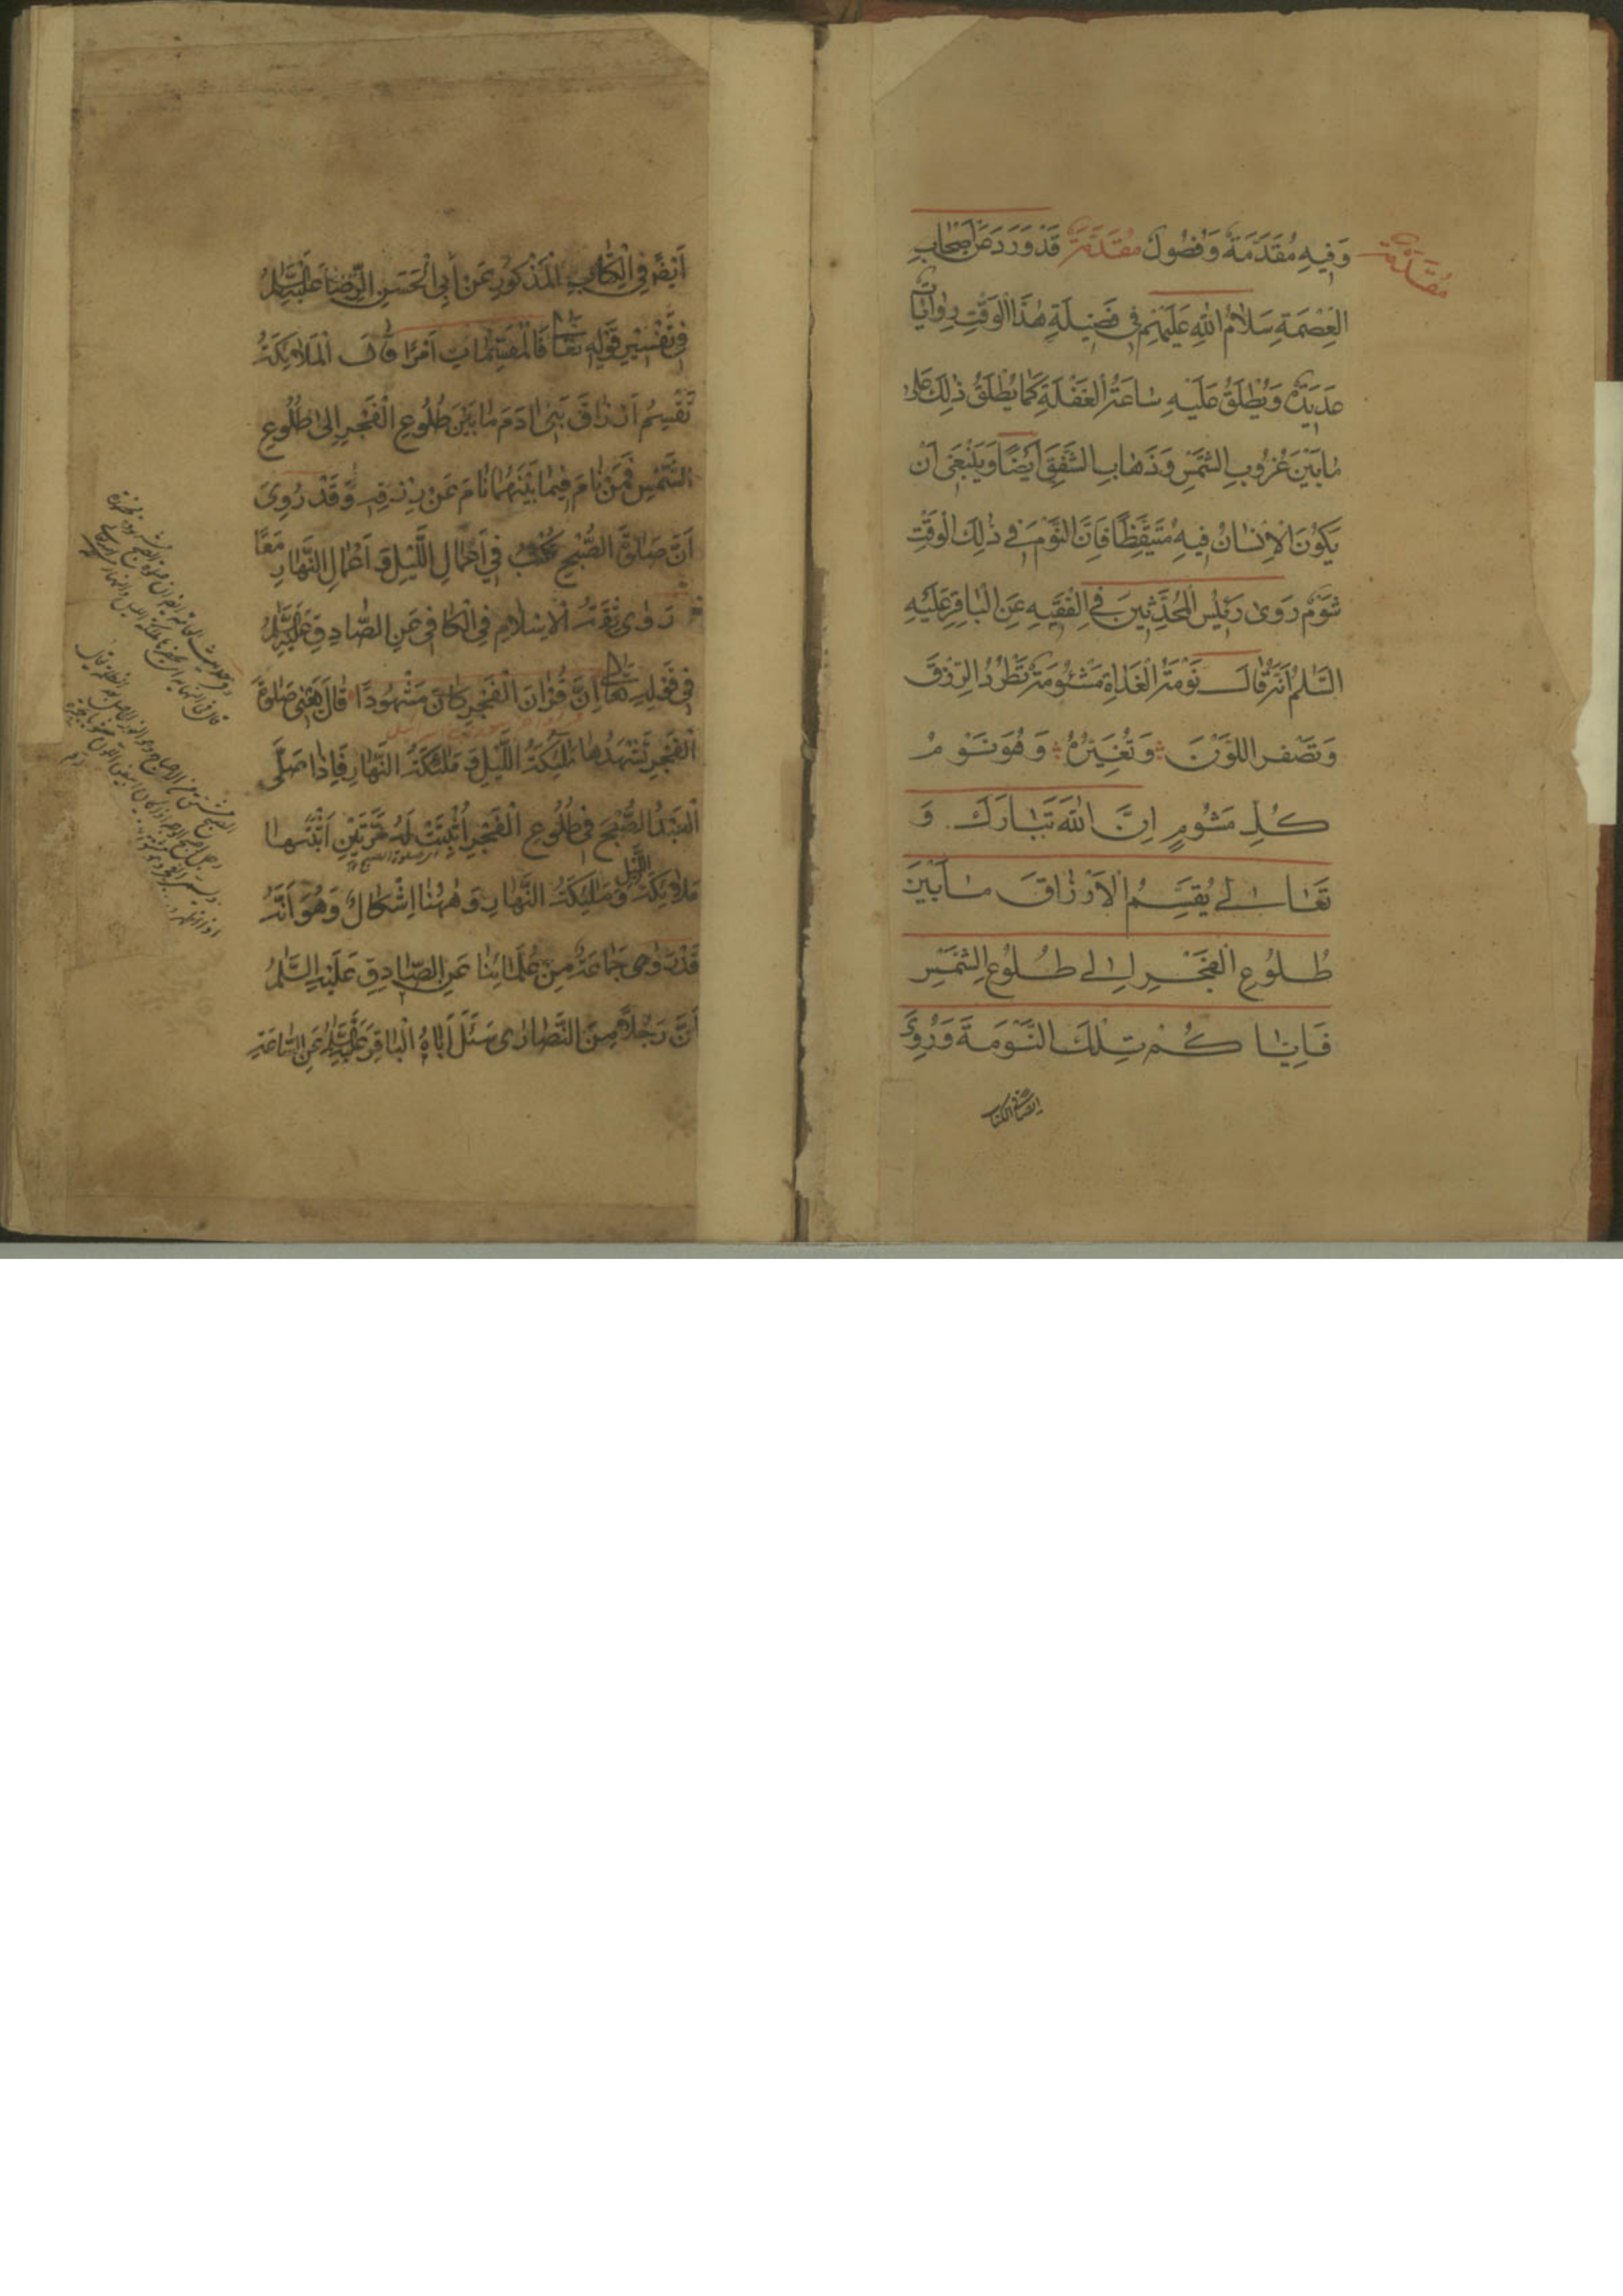 وَفِيهِ مُقَدَّمَةٌ وَفُصُولٌ مُقَدَّمَةٌ قَدْ وَرَدَ عَنْ اَصْحَابِ
مُقَدَّمَةٌ
الْعِصْمَةِ سَلَامُ اللهِ عَلَيْهِمْ فِي فَضِيلَةِ هٰذَا الْوَقْتِ رِوَايَاتٌ
عَدِيدَةٌ وَيُطْلَقُ عَلَيْهِ سَاعَةُ الْغَفْلَةِ كَمَا يُطْلَقُ ذٰلِكَ عَلَى
مَا بَيْنَ غُرُوبِ الشَّمْسِ وَذَهَابِ الشَّفَقِ اَيْضًا وَيَنْبَغِي اَنْ
يَكُونَ الْاِنْسَانُ فِيهِ مُتَيَقِّظًا فَاِنَّ النَّوْمَ فِي ذٰلِكَ الْوَقْتِ
شَوْمٌ رَوٰى رَئِيسُ الْمُحَدِّثِينَ فِي الْفَقِيهِ عَنِ الْبَاقِرِ عَلَيْهِ
السَّلٰمُ اَنَّهُ قَالَ نَوْمَةُ الْغَدَاةِ مَشْئُومَةٌ تَطْرُدُ الرِّزْقَ
وَتُصَفِّرُ اللَّوْنَ وَتُغَيِّرُهُ وَهُوَ نَوْمُ
كُلِّ مَشُومٍ اِنَّ اللهَ تَبَارَكَ وَ
تَعَالٰى يُقَسِّمُ الْاَرْزَاقَ مَا بَيْنَ
طُلُوعِ الْفَجْرِ اِلٰى طُلُوعِ الشَّمْسِ
فَاِيَّاكُمْ وتِلْكَ النَّوْمَةَ وَرُوِيَ
ايضا في الكتاب
اَيْضًا فِي الْكِتَابِ الْمَذْكُورِ عَنْ اَبِي الْحَسَنِ الرِّضَا عَلَيْهِ السَّلٰمُ
فِي تَفْسِيرِ قَوْلِهِ تَعَالٰى فَالْمُقَسِّمَاتِ اَمْرًا قَالَ الْمَلَائِكَةُ
تُقَسِّمُ اَرْزَاقَ بَنِي اٰدَمَ مَا بَيْنَ طُلُوعِ الْفَجْرِ اِلٰى طُلُوعِ
الشَّمْسِ فَمَنْ نَامَ فِيمَا بَيْنَهُمَا نَامَ عَنْ رِزْقِهِ وَقَدْ رُوِيَ
اَنَّ صَلٰوةَ الصُّبْحِ تُكْتَبُ فِي اَعْمَالِ اللَّيْلِ وَ اَعْمَالِ النَّهَارِ مَعًا
رَوٰى ثِقَةُ الْاِسْلَامِ فِي الْكَافِي عَنِ الصَّادِقِ عَلَيْهِ السَّلٰمُ
فِي قَوْلِهِ تَعَالٰى اِنَّ قُرْاٰنَ الْفَجْرِ كَانَ مَشْهُودًا قَالَ يَعْنِي صَلٰوةَ
الْفَجْرِ تَشْهَدُهَا مَلٰئِكَةُ اللَّيْلِ وَ مَلٰئِكَةُ النَّهَارِ فَاِذَا صَلَّى
الْعَبْدُ الصُّبْحَ فِي طُلُوعِ الْفَجْرِ اُثْبِتَتْ لَهُ مَرَّتَيْنِ اَثْبَتَهَا
اى صلوة الصبح
مَلَائِكَةُ اللَّيْلِ وَمَلٰئِكَةُ النَّهَارِ وَهٰهُنَا اِشْكَالٌ وَهُوَ اَنَّهُ
قَدْ رَوٰى جَمَاعَةٌ مِنْ عُلَمَائِنَا عَنِ الصَّادِقِ عَلَيْهِ السَّلٰمُ
اَنَّ رَجُلًا مِنَ النَّصَارٰى سَئَلَ اَبَاهُ الْبَاقِرَ عَلَيْهِ السَّلٰمُ عَنِ السَّاعَةِ